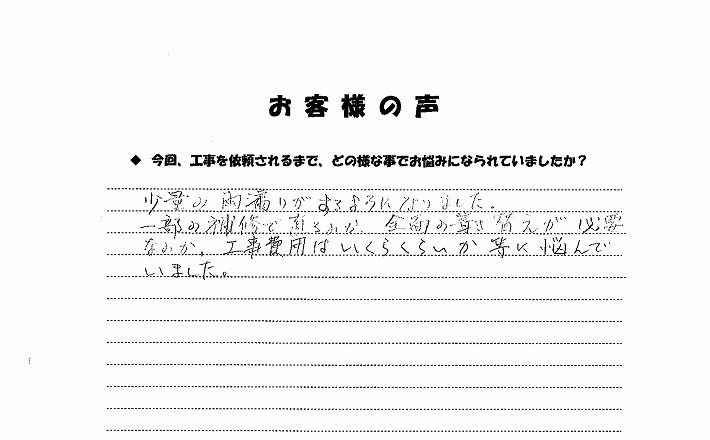 お客様の声
◆ 今回、工事を依頼されるまで、どの様な事でお悩みになられていましたか?
少量の雨漏りがするようになりました。
一部の補修で直るのか、全面の葺き替えが必要
なのか、工事費用はいくらくらいか等に悩んで
いました。